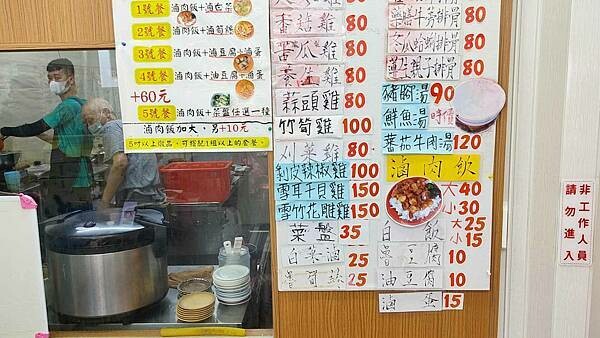 1號餐 滷肉飯+滷白菜
2號餐 滷肉飯+滷筍絲
3號餐 滷肉飯+滷豆腐+滷蛋
4號餐 滷肉飯+油豆腐+滷蛋
+60元
5號餐 滷肉飯+菜盤任選一樣
滷肉飯加大,多+10元
80
香菇雞 80
苦瓜雞 80
養生雞 80
蒜頭雞 80
竹筍雞 100
刈菜雞 80
剝皮辣椒雞 100
雪耳干貝雞 150
雪竹花雕雞 150
菜盤 35
白菜滷 25
魯筍絲 25
排骨 80
冬瓜蛤蜊排骨 80
蓮子親子排骨 80
豬腳湯 90
鮮魚湯 時價
蕃茄牛肉湯 120
滷肉飯
大 40
小 30
白飯 大 25
小 15
魯豆腐 10
油豆腐 10
滷蛋 15
非工作人員
請勿進入